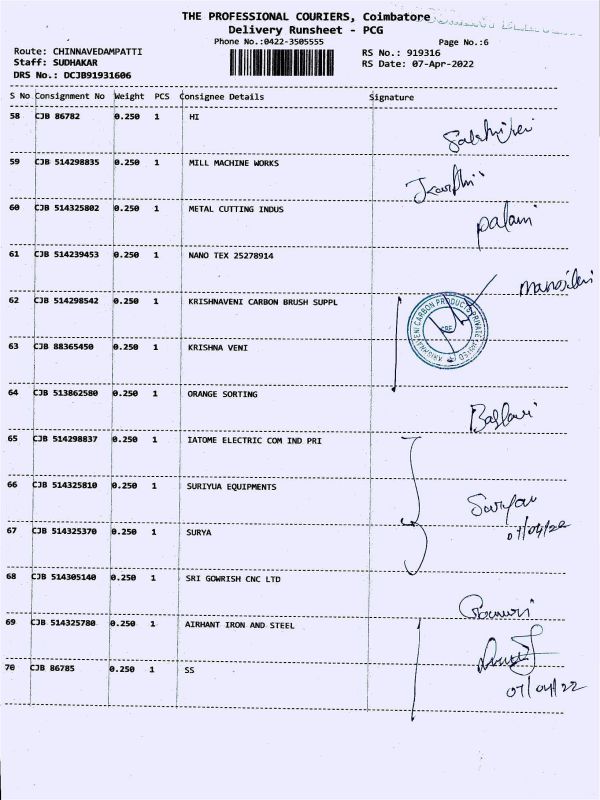 THE PROFESSIONAL COURIERS, Coimbatore
Delivery Runsheet - PCG
Phone No.:0422-3505555
Page No.:6
Route: CHINNAVEDAMPATTI
RS No.: 919316
Staff: SUDHAKAR
RS Date: 07-Apr-2022
DRS No.: DCJB91931606
S No Consignment No Weight PCS Consignee Details Signature
58 CJB 86782 0.250 1 HI
59 CJB 514298835 0.250 1 MILL MACHINE WORKS
Karthi
60 CJB 514325802 0.250 1 METAL CUTTING INDUS
palani
61 CJB 514239453 0.250 1 NANO TEX 25278914
62 CJB 514298542 0.250 1 KRISHNAVENI CARBON BRUSH SUPPL
KRISHNAVENI CARBON PRODUCTS PRIVATE LIMITED
CBE
63 CJB 88365450 0.250 1 KRISHNA VENI
64 CJB 513862580 0.250 1 ORANGE SORTING
65 CJB 514298837 0.250 1 IATOME ELECTRIC COM IND PRI
66 CJB 514325810 0.250 1 SURIYUA EQUIPMENTS
Suriya
67 CJB 514325370 0.250 1 SURYA
07/04/22
68 CJB 514305140 0.250 1 SRI GOWRISH CNC LTD
69 CJB 514325780 0.250 1 AIRHANT IRON AND STEEL
70 CJB 86785 0.250 1 SS
07/04/22